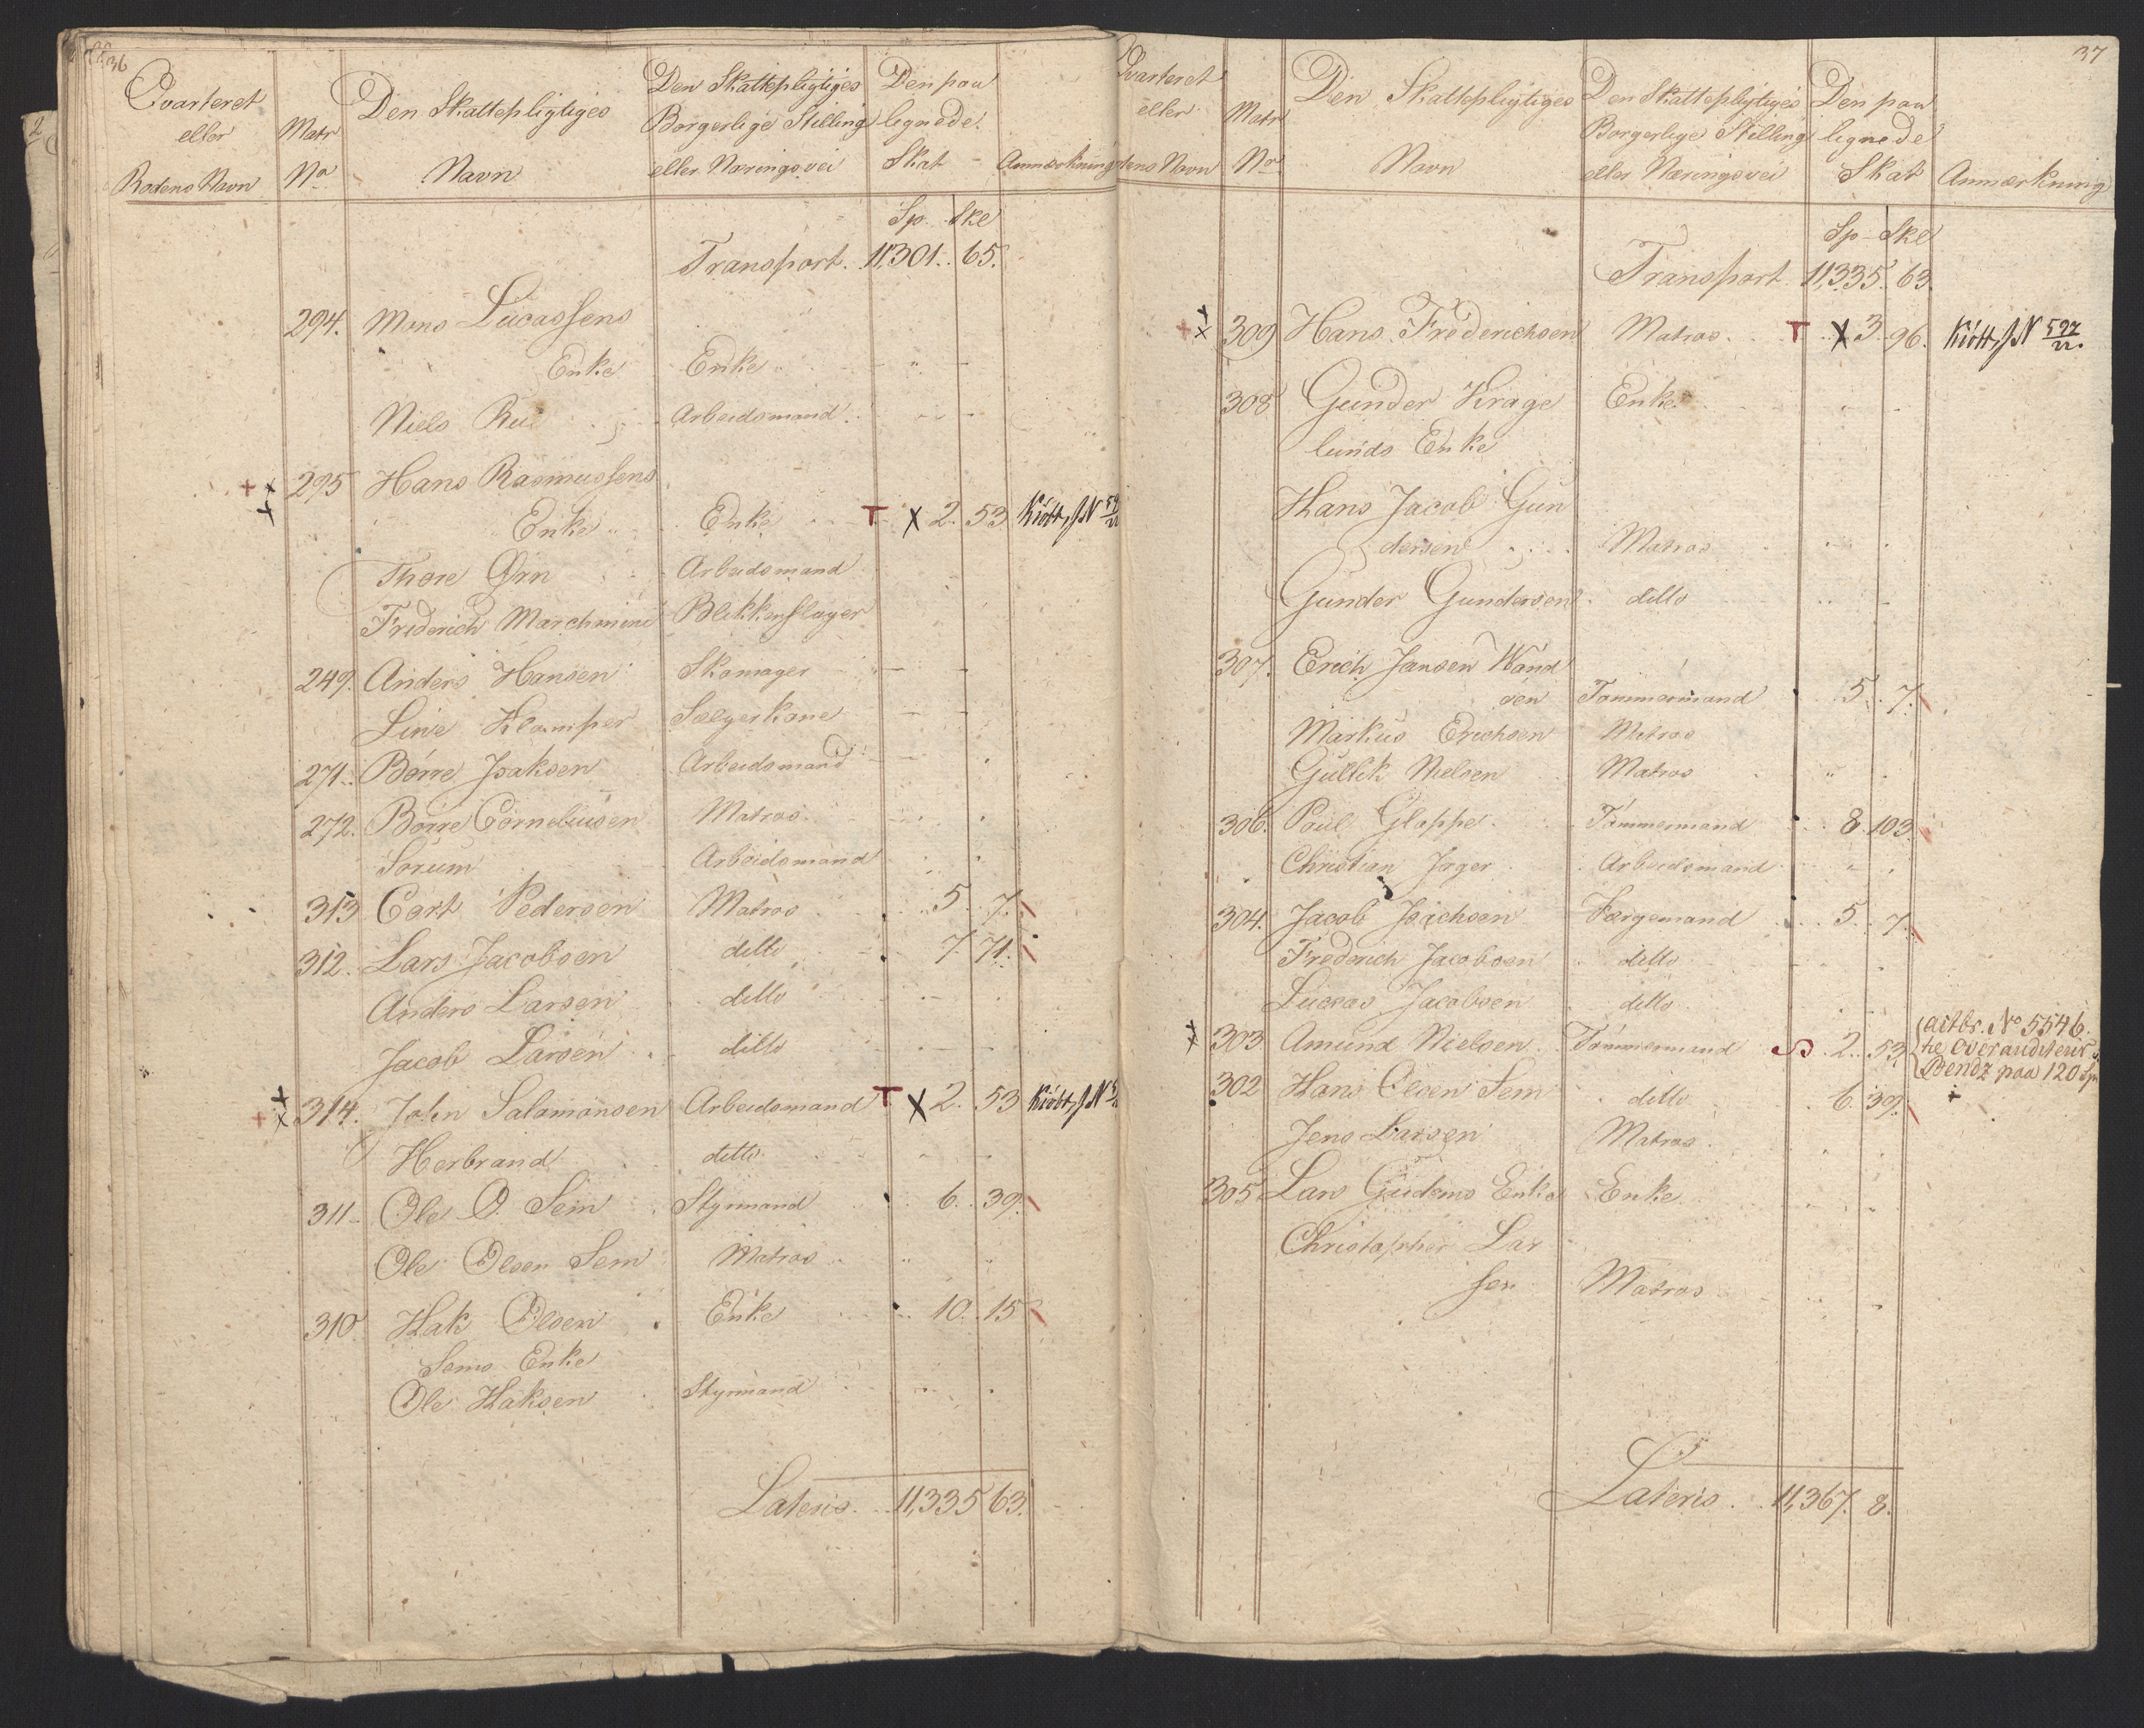 36
Qvarteret
eller
Rodens Navn
Matr
No
Den Skattepligtiges
Navn
Den Skattepligtiges
Borgerlige Stilling
eller Næringsvei
Den paa
lignede
Skat
Anmærkning
Sp. Ske
Transport. 11,301. 65.
294. Mons Lucassens
Enke Enke
Niels Rue Arbeidsmand
295 Hans Rasmussens
Enke Enke T X 2. 53 Kiöbt, f N
Thore Ørn Arbeidsmand
Friderich Marchmene Blikkenslager
249. Anders Hansen Skomager
Line Klamper Sælgerkone
271. Børre Isaksen Arbeidsmand
272. Børre Corneliusen Matros
Sørum Arbeidsmand
313 Cort Pedersen Matros 5. 7.
312. Lars Jacobsen ditto 7. 71.
Anders Larsen ditto
Jacob Larsen ditto
314. John Salamonsen Arbeidsmand T X 2. 53 Kiöbt, f N
Herbrand ditto
311. Ole O. Sem Styrmand 6. 39.
Ole Olsen Sem Matros
310 Hak Olsen Enke 10. 15
Sems Enke
Ole Haksen Styrmand
Lateris. 11,335 63.
37
Qvarteret
eller
dens Navn
Matr
No
Den Skattepligtiges
Navn
Den Skattepligtiges
Borgerlige Stilling
eller Næringsvei
Den paa
lignede
Skat
Anmærkning
Sp. Skl
Transport 11,335. 63.
309 Hans Frederichsen Matros T X 3. 96. Kiöbt, f N
308 Gunder Krage Enke
lunds Enke
Hans Jacob Gun
dersen Matros
Gunder Gundersen ditto
307. Erich Jansen Wand
sen Tømmermand 5. 7.
Markus Erichsen Matros
Gullik Nielsen Matros
306. Poul Gloppe Tømmermand 8. 103.
Christian Jæger Arbeidsmand
304. Jacob Isachsen Færgemand 5. 7.
Frederich Jacobsen ditto
Lucas Jacobsen ditto
303 Amund Nielsen Tømmermand S 2. 53. actbr. No 5546.
he Overauditeur
Bendz paa 120 Sp
302 Hans Olsen Sem ditto 6. 39.
Jens Larsen Matros
305 Lars Gudems Enke Enke
Christopher Lar
sen Matros
Lateris. 11,367. 8.